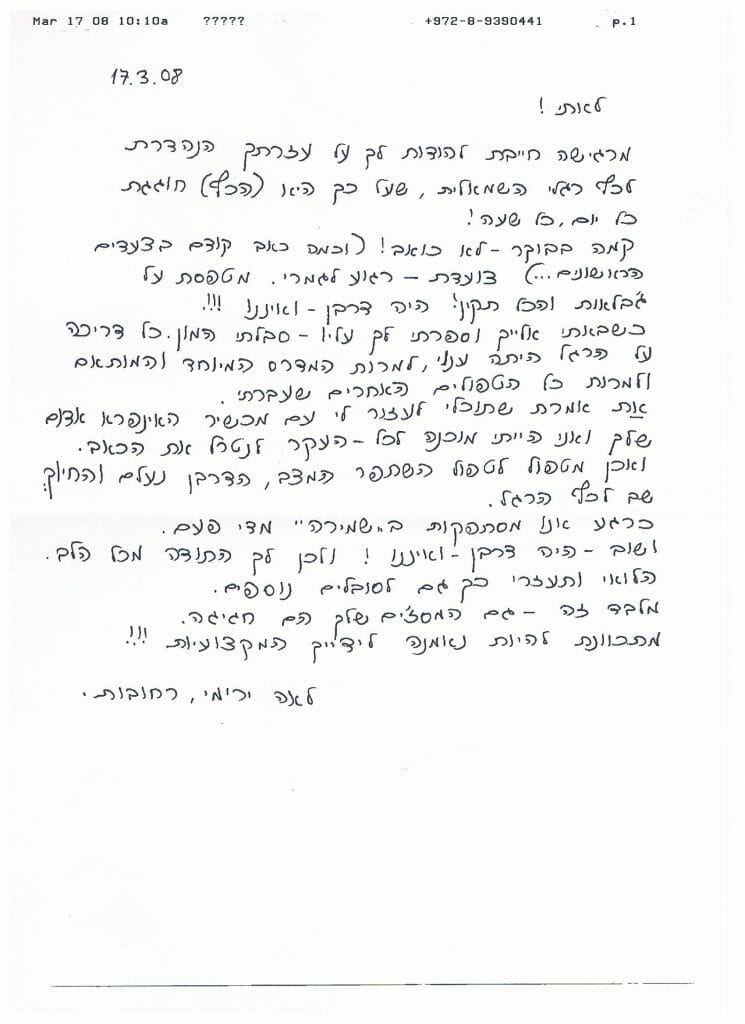 Mar 17 08 10:10a ????? +972-8-9390441 p.1
17.3.08
לאותי !
מרגישה חייבת להודות לך על עזרתך הנהדרת
לכף רגלי השמאלית, שעל כך היא (הכף) חוגגת
כל יום, כל שעה!
קמה בבוקר - לא כואב! (וכמה כאב קודם בצעדים
הראשונים...) צועדת - רגוע לגמרי. מטפסת על
גבלאות והכל תקין! היה דרבן - ואיננו !!!
כשבאתי אלייך וספרתי לך עליו - סבלתי המון. כל דריכה
על הרגל היתה ענוי, למרות המדרס המיוחד והמותאם
ולמרות כל הטפולים האחרים שעברתי.
את אמרת שתוכלי לעזור לי עם מכשיר האינפרא אדום
שלך ואני הייתי מוכנה לכל - העקר לנטרל את הכאב.
ואכן מטפול לטפול השתפר המצב, הדרבן נעלם והחיוך
שב לכף הרגל.
כרגע אנו מסתפקות ב"שמירה" מדי פעם.
ושוב - היה דרבן - ואיננו ! ולכן לך התודה מכל הלב.
הלואי ותעזרי כך גם לסובלים נוספים.
מלבד זה - גם המסז'ים שלך הם חגיגה.
מתכוונת להיות נאמנה לידייך המקצועיות !!!
לאה ירימי, רחובות.